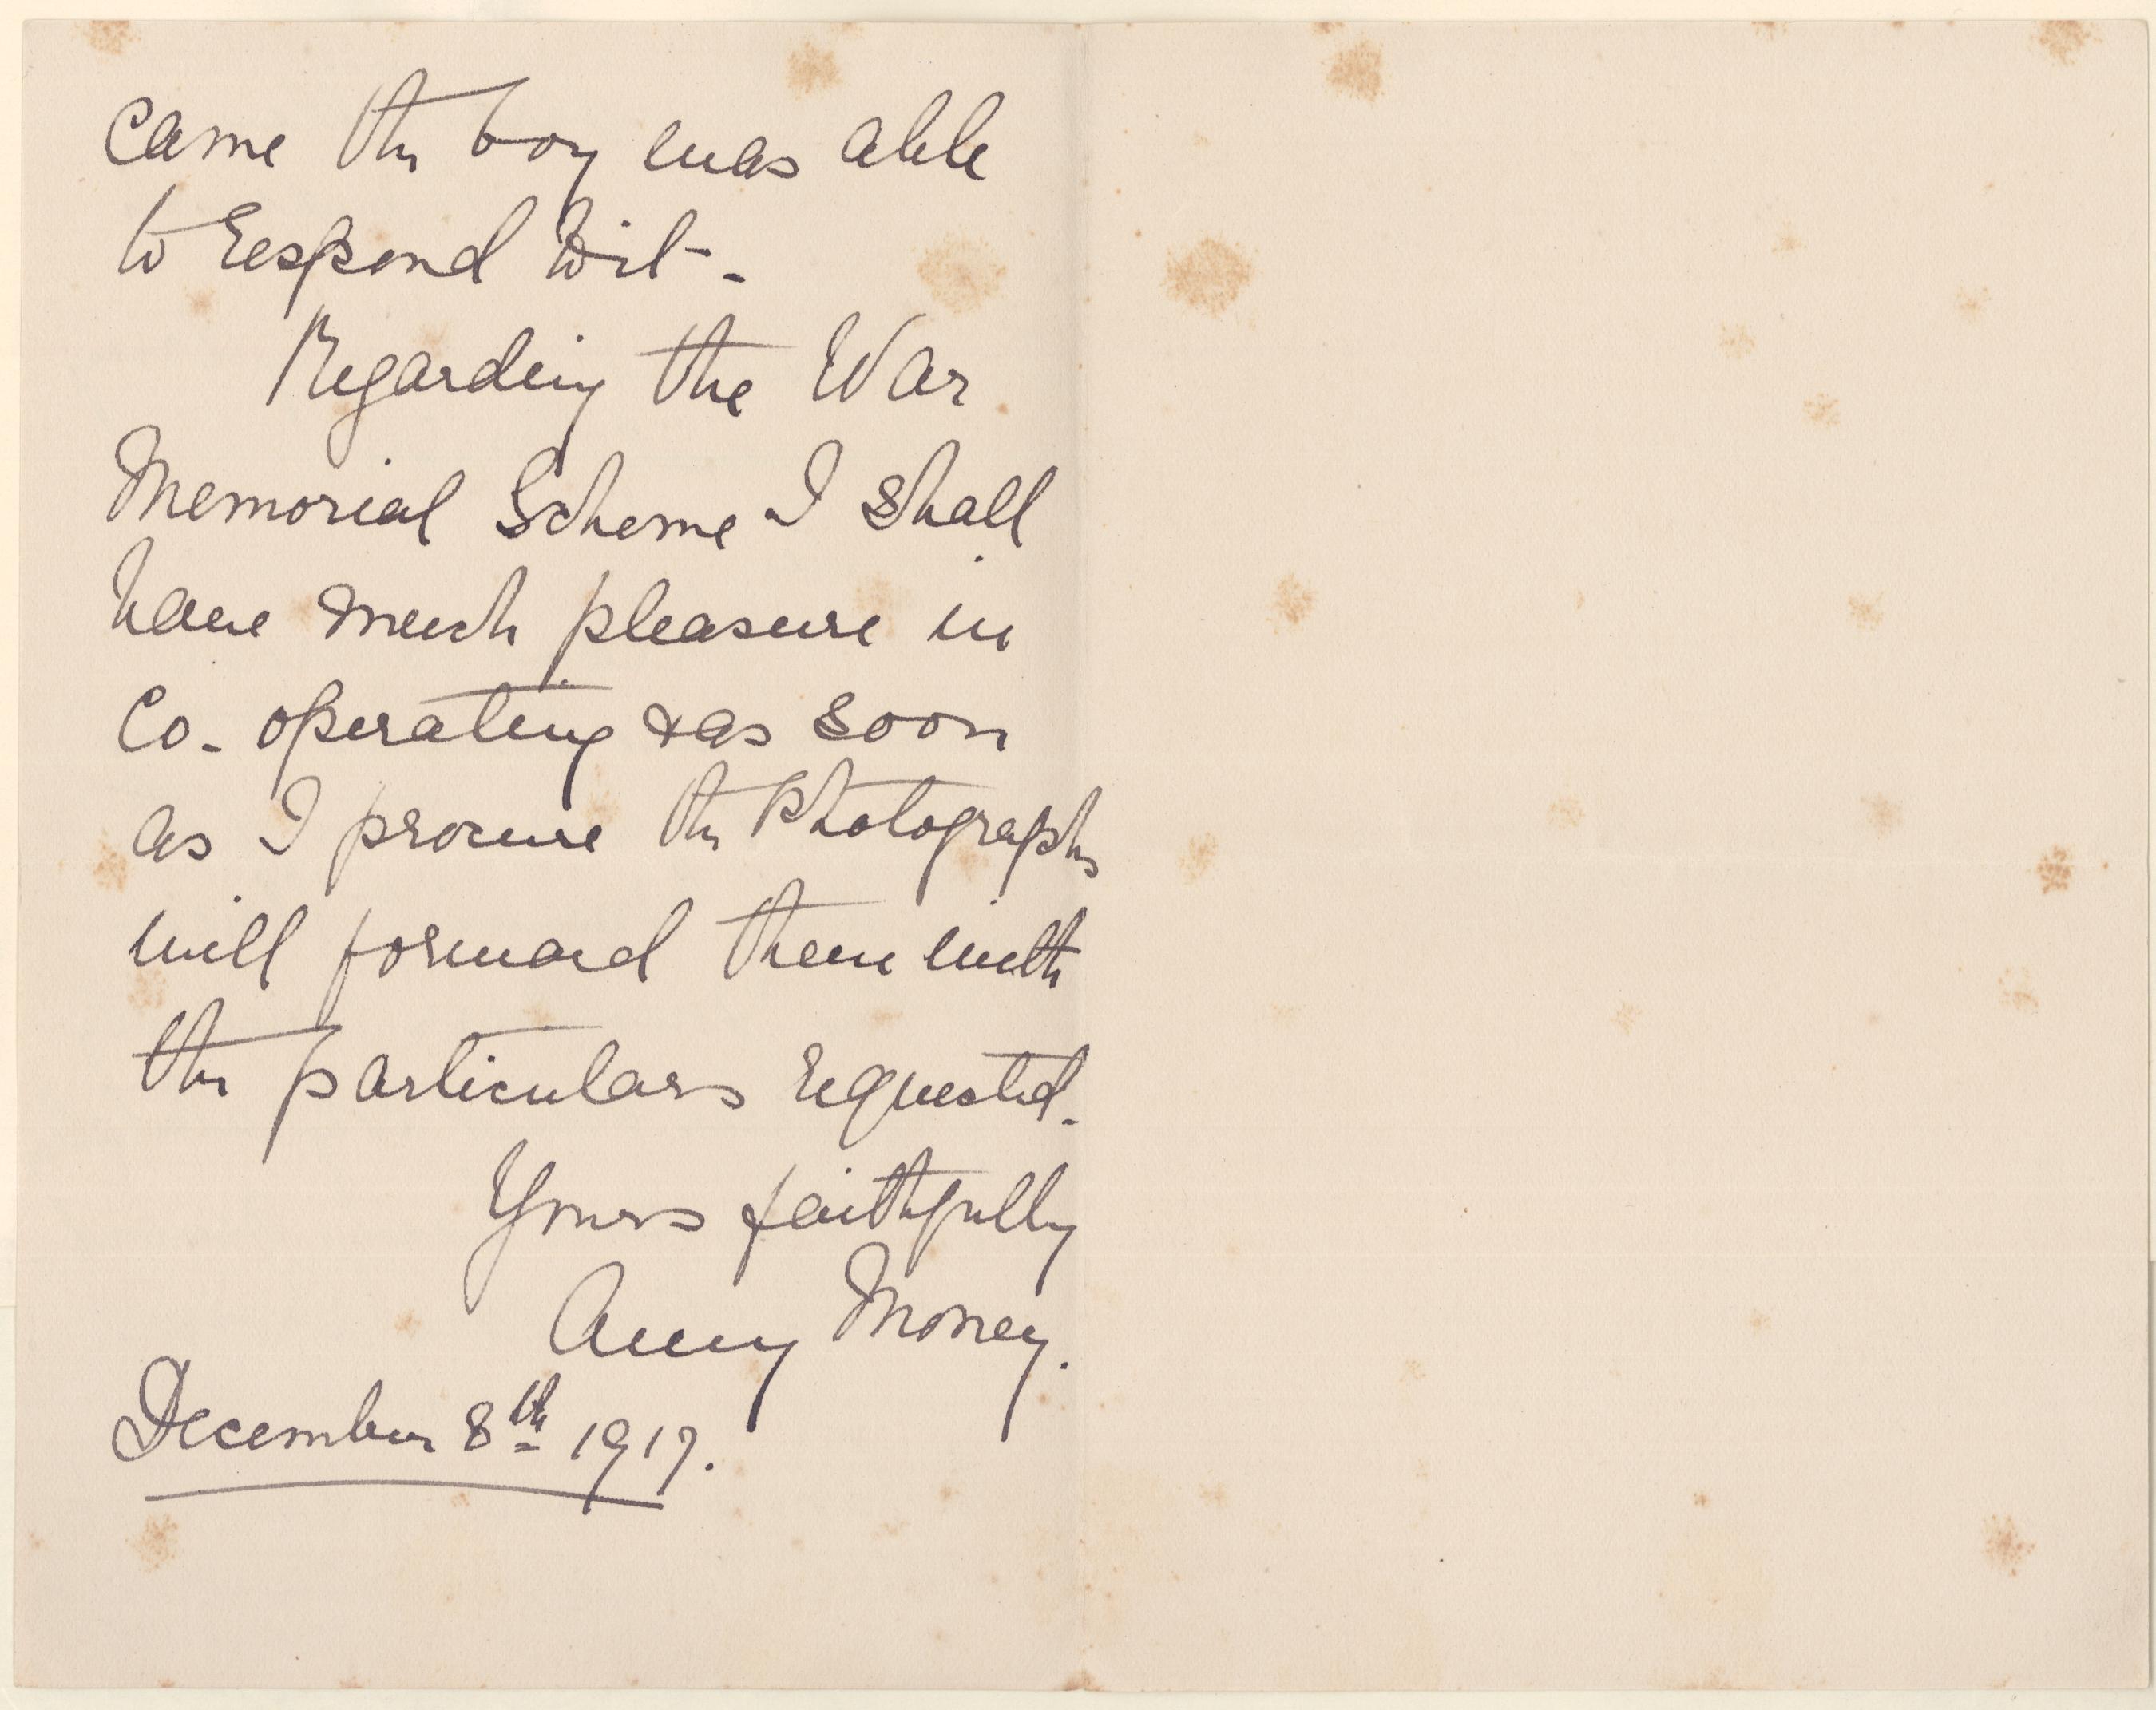 came the boy was able
to respond to it -
Regarding the War
Memorial Scheme I shall
have much pleasure in
Co-operating & as soon
as I procure the Photographs
will forward them with
the particulars requested.
Yours faithfully
Money.
December 8th 1919.